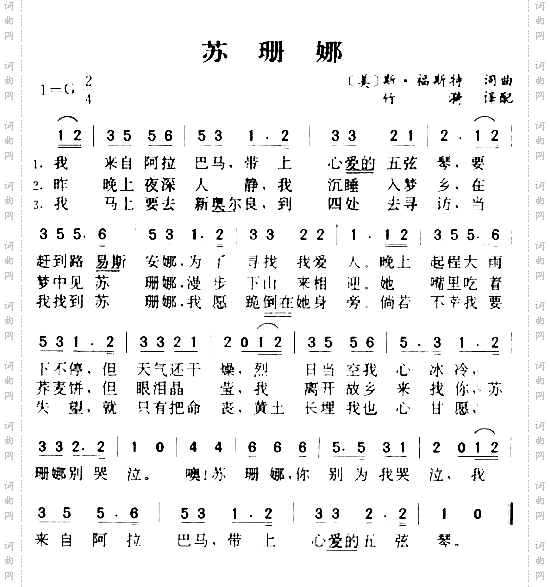 苏 珊 娜
1=G 2/4
〔美〕斯·福斯特 词曲
竹 漪 译配
1 2 | 3 5 5 6 | 5 3 1 · 2 | 3 3 2 1 | 2 · 1 2 |
1. 我 来自阿拉 巴马,带 上 心爱的 五弦 琴,要
2. 昨 晚上夜深 人 静,我 沉睡 入梦 乡,在
3. 我 马上要去 新奥尔良,到 四处 去寻 访,当
3 5 5 · 6 | 5 3 1 · 2 | 3 3 2 2 | 1 · 1 2 | 3 5 5 · 6 |
赶到路 易斯 安娜,为了 寻找 我爱 人。晚上 起程大雨
梦中见 苏 珊娜,漫步 下山 来相 迎。她 嘴里吃着
我找到 苏 珊娜,我愿 跪倒在她身 旁。倘若 不幸我要
5 3 1 · 2 | 3 3 2 1 | 2 0 1 2 | 3 5 5 · 6 | 5 3 1 · 2 |
下不停,但 天气还干 燥,烈 日当空我 心冰冷。
荞麦饼,但 眼泪晶 莹,我 离开故乡 来找你。苏
失 望,就 只有把命 丧,黄土 长埋我也 心甘愿。
3 3 2 · 2 | 1 0 | 4 4 | 6 6 6 | 5 · 5 3 1 | 2 0 1 2 |
珊娜别 哭 泣。 噢!苏 珊娜,你 别为我哭 泣,我
3 5 5 · 6 | 5 3 1 · 2 | 3 3 2 · 2 | 1 0 ‖
来自阿 拉 巴马,带 上 心爱的五弦 琴。
词曲网